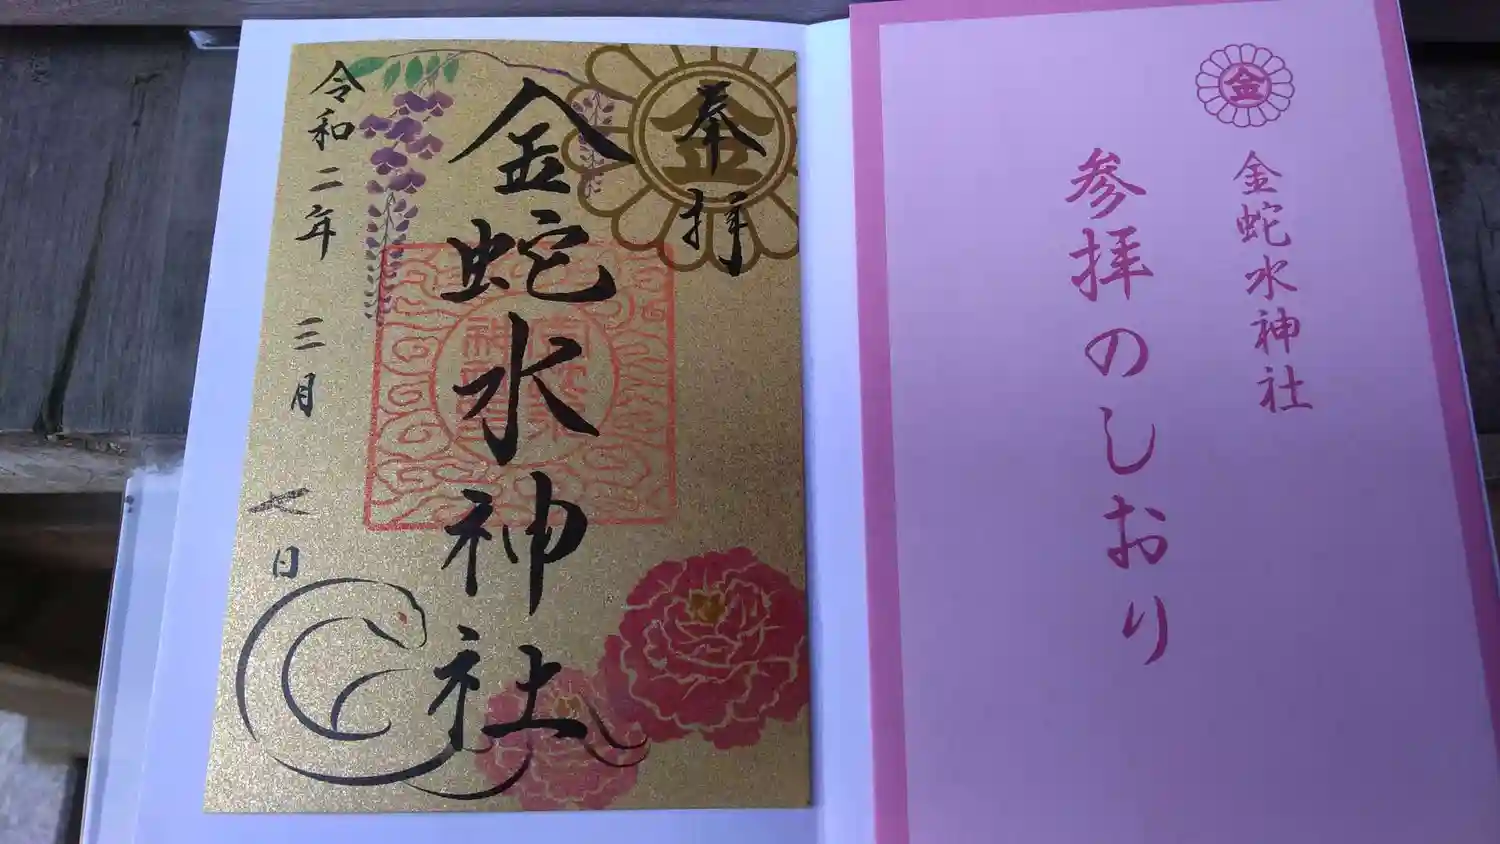 奉拝
金蛇水神社
令和二年 三月 七日
金
金
金蛇水神社
参拝のしおり